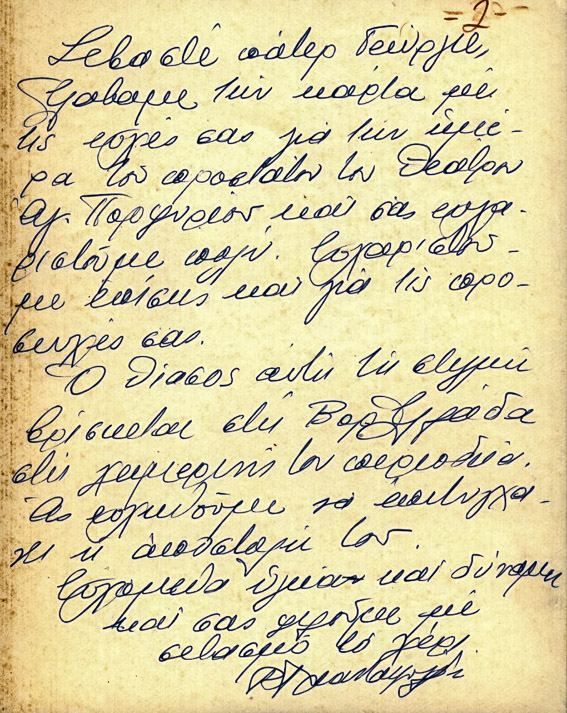 =2=
Σεβαστέ πάτερ Γεώργιε,
Λάβαμε τήν κάρτα μέ
τίς εὐχές σας γιά τήν ἡμέ-
ρα τοῦ προστάτου τοῦ Θεάτρου
Ἁγ. Πορφυρίου καί σας εὐχα-
ριστοῦμε πολύ. Εὐχαριστοῦ-
με ἐπίσης καί γιά τίς προ-
σευχές σας.
Ὁ θίασος αὐτή τή στιγμή
βρίσκεται στή
στίς χειμερινή του περιοδεία.
Ἄς εὐχηθοῦμε νά ἐπιτύχη-
ἡ ἀποστολή του.
Εὐχόμεθα ὑγεία καί δύναμη
καί σας φιλοῦμε μέ
σεβασμό τό χέρι.